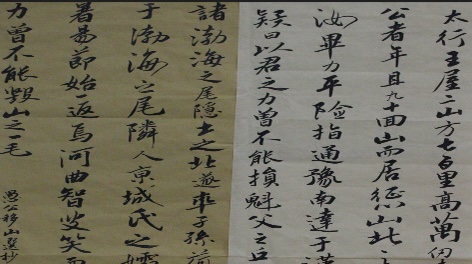 太行王屋二山方七百里高萬仞
公者年且九十面山而居惩山北
汝畢力平險指通豫南達于漢
疑曰以君之力曾不能損魁父之丘
諸渤海之尾隱土之北遂率子孫荷
于渤海之尾隣人京城氏之孀
暑易節始一返焉河曲智叟笑而
力曾不能毀山之一毛
愚公移山選抄